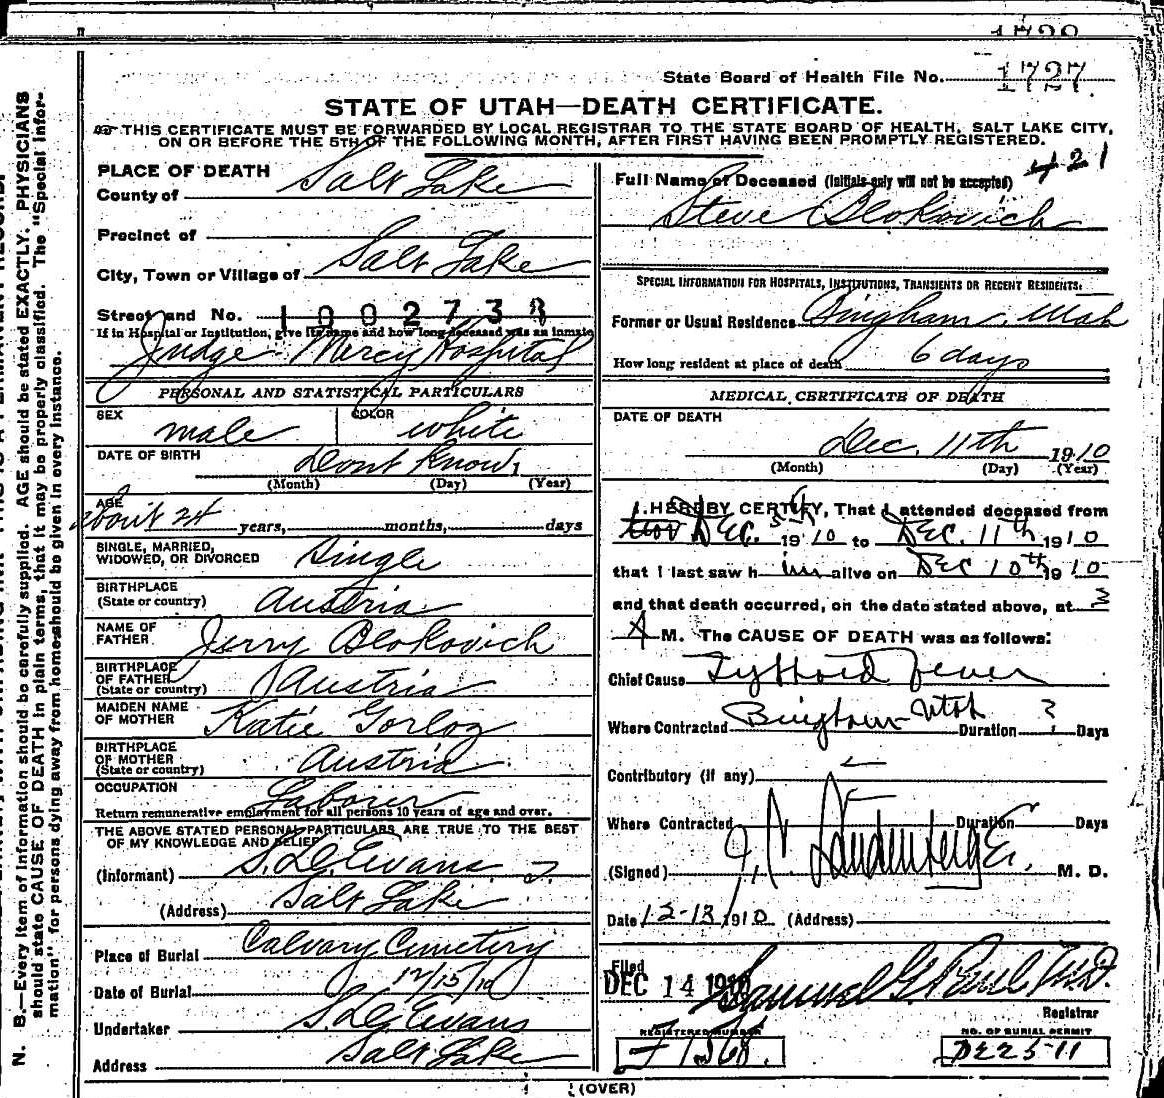 State Board of Health File No. 1727
STATE OF UTAH—DEATH CERTIFICATE.
THIS CERTIFICATE MUST BE FORWARDED BY LOCAL REGISTRAR TO THE STATE BOARD OF HEALTH, SALT LAKE CITY,
ON OR BEFORE THE 5TH OF THE FOLLOWING MONTH, AFTER FIRST HAVING BEEN PROMPTLY REGISTERED.
N. B.—Every item of information should be carefully supplied. AGE should be stated EXACTLY. PHYSICIANS
should state CAUSE OF DEATH in plain terms, that it may be properly classified. The "Special Infor-
mation" for persons dying away from home should be given in every instance.
PLACE OF DEATH
County of Salt Lake
Precinct of
City, Town or Village of Salt Lake
Street and No. 1002738
If in Hospital or Institution, give its name and how long deceased was an inmate
Judge Mercy Hospital
PERSONAL AND STATISTICAL PARTICULARS
SEX male COLOR white
DATE OF BIRTH Dont Know
(Month) (Day) (Year)
AGE about 24 years, months, days
SINGLE, MARRIED,
WIDOWED, OR DIVORCED Single
BIRTHPLACE
(State or country) Austria
NAME OF
FATHER Jerry Blokovich
BIRTHPLACE
OF FATHER
(State or country) Austria
MAIDEN NAME
OF MOTHER Katie
BIRTHPLACE
OF MOTHER
(State or country) Austria
OCCUPATION Laborer
Return remunerative employment for all persons 10 years of age and over.
THE ABOVE STATED PERSONAL PARTICULARS ARE TRUE TO THE BEST
OF MY KNOWLEDGE AND BELIEF
(Informant) S. D. Evans
(Address) Salt Lake
Place of Burial Calvary Cemetery
Date of Burial 12/15/10
Undertaker S. D. Evans
Address Salt Lake
421
Full Name of Deceased (Initials only will not be accepted)
Steve Blokovich
SPECIAL INFORMATION FOR HOSPITALS, INSTITUTIONS, TRANSIENTS OR RECENT RESIDENTS.
Former or Usual Residence Bingham, Utah
How long resident at place of death 6 days
MEDICAL CERTIFICATE OF DEATH
DATE OF DEATH
Dec. 11th 1910
(Month) (Day) (Year)
I HEREBY CERTIFY, That I attended deceased from
Dec. 5th 1910 to Dec. 11th 1910
that I last saw him alive on Dec 10th 1910
and that death occurred, on the date stated above, at 3
A M. The CAUSE OF DEATH was as follows:
Chief Cause Typhoid Fever
Where Contracted Bingham Utah Duration ? Days
Contributory (if any)
Where Contracted Duration Days
(Signed) M. D.
Date 12-13 1910 (Address)
Filed
DEC 14 1910 Samuel G. Paul M.D.
Registrar
REGISTERED NUMBER NO. OF BURIAL PERMIT
F 1368. D225-11
(OVER)